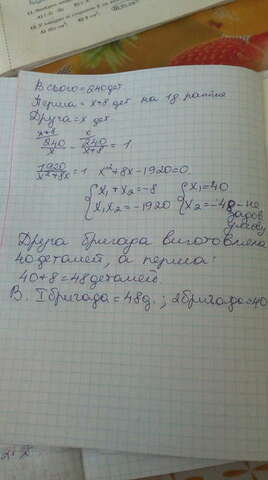 Всього = 240 дет
Перша = x+8 дет на 1д раніше
Друга = x дет
x+8 x
240/x - 240/x+8 = 1
1920/x²+8x = 1 x²+8x-1920=0
{x₁+x₂=-8 {x₁=40
{x₁x₂=-1920 {x₂=-48 - не
задов
умову
Друга бригада виготовляла
40 деталей, а перша:
40+8=48 деталей.
В. I бригада = 48д.; 2бригада=40